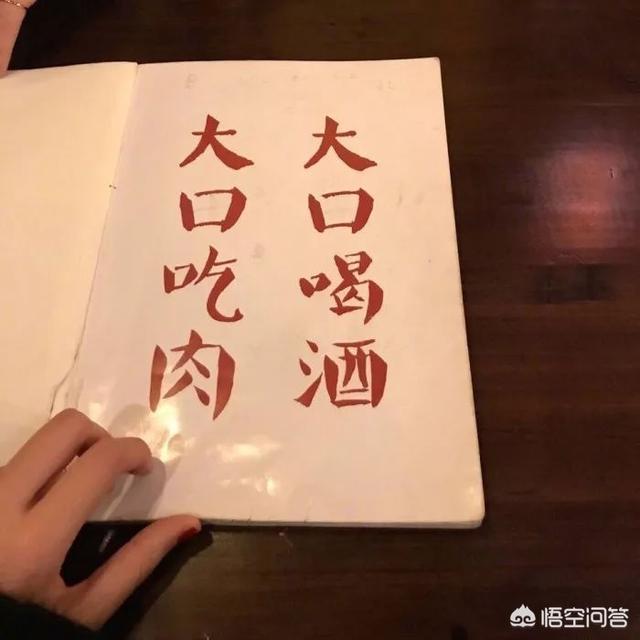 大口喝酒
大口吃肉
悟空问答